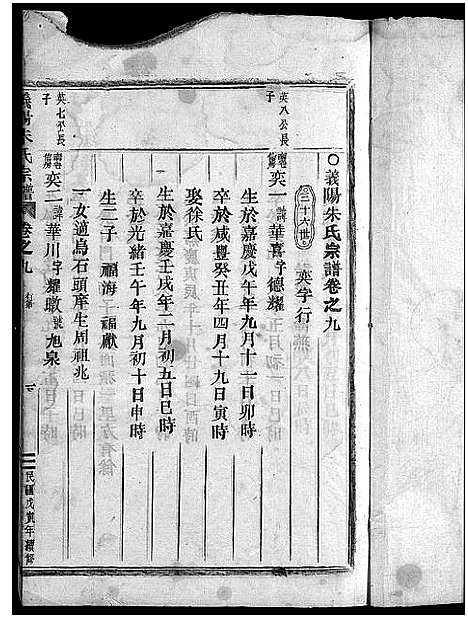 ○義陽朱氏宗譜卷之九
三十六世 奕字行
英八公長子
奕一 諱華喜字德耀
生於嘉慶戊午年九月十一日卯時
卒於咸豐癸丑年四月十九日寅時
娶徐氏
生於嘉慶壬戌年二月初五日巳時
卒於光緒壬午年九月初十日申時
生二子 福海 福猷
一女適烏石頭庠生周祖兆
英七公長子
奕二 諱華川字耀暾號旭泉
義陽朱氏宗譜 卷之九
民國戊寅年續修